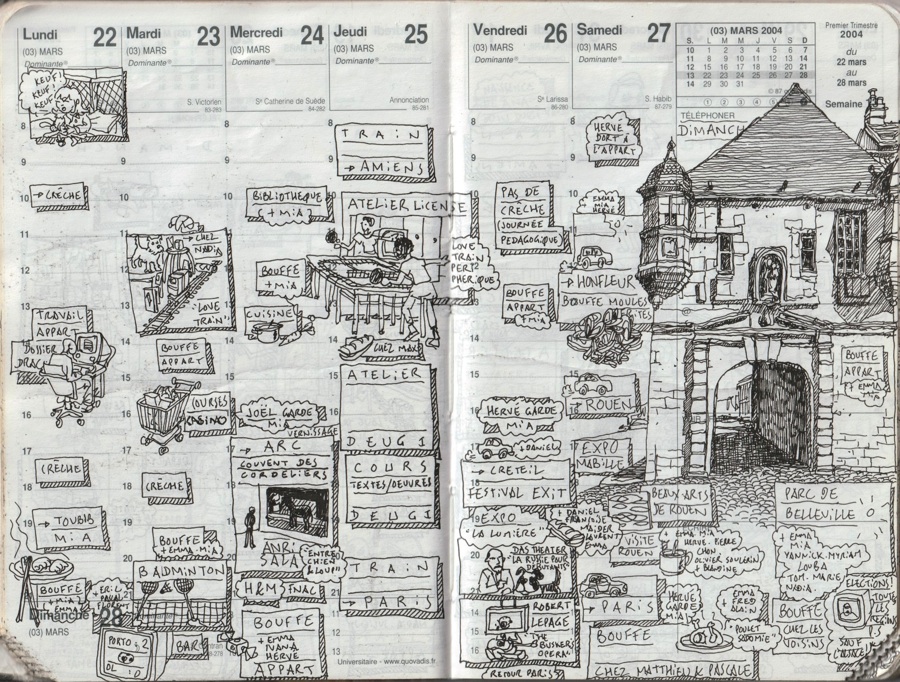 Lundi 22
(03) MARS
Dominante
KEUF!
KEUF!
KEUF!
8
9
10
→ CRÈCHE
11
12
13
TRAVAIL
APPART
DOSSIER
DRAC
16
17
CRÈCHE
18
19
→ TOUBIB
MIA
BOUFFE
+ MIA
+ EMMA
Dimanche 28
(03) MARS
Mardi 23
(03) MARS
Dominante
S. Victorien
83-283
8
9
→ CHEZ
NADIA
"LOVE
TRAIN"
BOUFFE
APPART
COURSES
CASINO
CRÈCHE
BOUFFE
+ EMMA + MIA
BADMINTON
+ ERIC
+ PAUL
FLORENT
PORTO : 2
OL : 0
BAR
Mercredi 24
(03) MARS
Dominante
Ste Catherine de Suède
84-282
8
9
10
BIBLIOTHEQUE
+ MIA
BOUFFE
+ MIA
CUISINE
JOËL GARDE
MIA
VERNISSAGE
→ ARC
COUVENT DES
CORDELIERS
ANRI
SALA
"ENTRE
CHIEN
& LOUP"
H&M FNAC
BOUFFE
+ EMMA
NANA
HERVÉ
APPART
Jeudi 25
(03) MARS
Dominante
Annonciation
85-281
TRAIN
→ AMIENS
ATELIER LICENSE
CHEZ MAX
ATELIER
DEUG 1
COURS
TEXTES/OEUVRES
DEUG 1
TRAIN
→ PARIS
Universitaire - www.quovadis.fr
Vendredi 26
(03) MARS
Dominante
Ste Larissa
86-280
8
9
10
PAS DE
CRÈCHE
(JOURNÉE
PEDAGOGIQUE)
LOVE
TRAIN
PERI
PHERIQUE
BOUFFE
APPART
+ MIA
HERVE GARDE
MIA
+ DANIEL
→ CRETEIL
FESTIVAL EXIT
EXPO
"LA LUMIÈRE"
+ DANIEL
FRANÇOISE
MAÏDER
LAURENT
EMMA
DAS THEATER
"LA RUSSIE POUR
DÉBUTANTS"
ROBERT
LEPAGE
"THE
BUSKER'S
OPERA"
RETOUR PARIS
Samedi 27
(03) MARS
Dominante
S. Habib
87-279
8
HERVE
DORT À
L'APPART
EMMA
MIA
HERVE
→ HONFLEUR
BOUFFE MOULES
FRITES
→ ROUEN
EXPO
MABILLE
BEAUX-ARTS
DE ROUEN
VISITE
ROUEN
+ EMMA + MIA
HERVE
→ PARIS
HERVE
GARDE
MIA
BOUFFE
+ EMMA
FRED
ALAIN
"POULET
SODOMIE"
CHEZ MATTHIEU & PASCALE
(03) MARS 2004
S. L M M J V S D
10 1 2 3 4 5 6 7
11 8 9 10 11 12 13 14
12 15 16 17 18 19 20 21
13 22 23 24 25 26 27 28
14 29 30 31
TÉLÉPHONER
DIMANCH
Premier Trimestre
2004
du
22 mars
au
28 mars
Semaine
BOUFFE
APPART
+ EMMA
MIA
PARC DE
BELLEVILLE
+ EMMA
MIA
YANNICK. MYRIAM
LOUBA
TOM. MARIE
NADIA.
BOUFFE
CHEZ LES
VOISINS
ELECTIONS!
TOUTES
LES
REGIONS
SAUF
L'ALSACE!